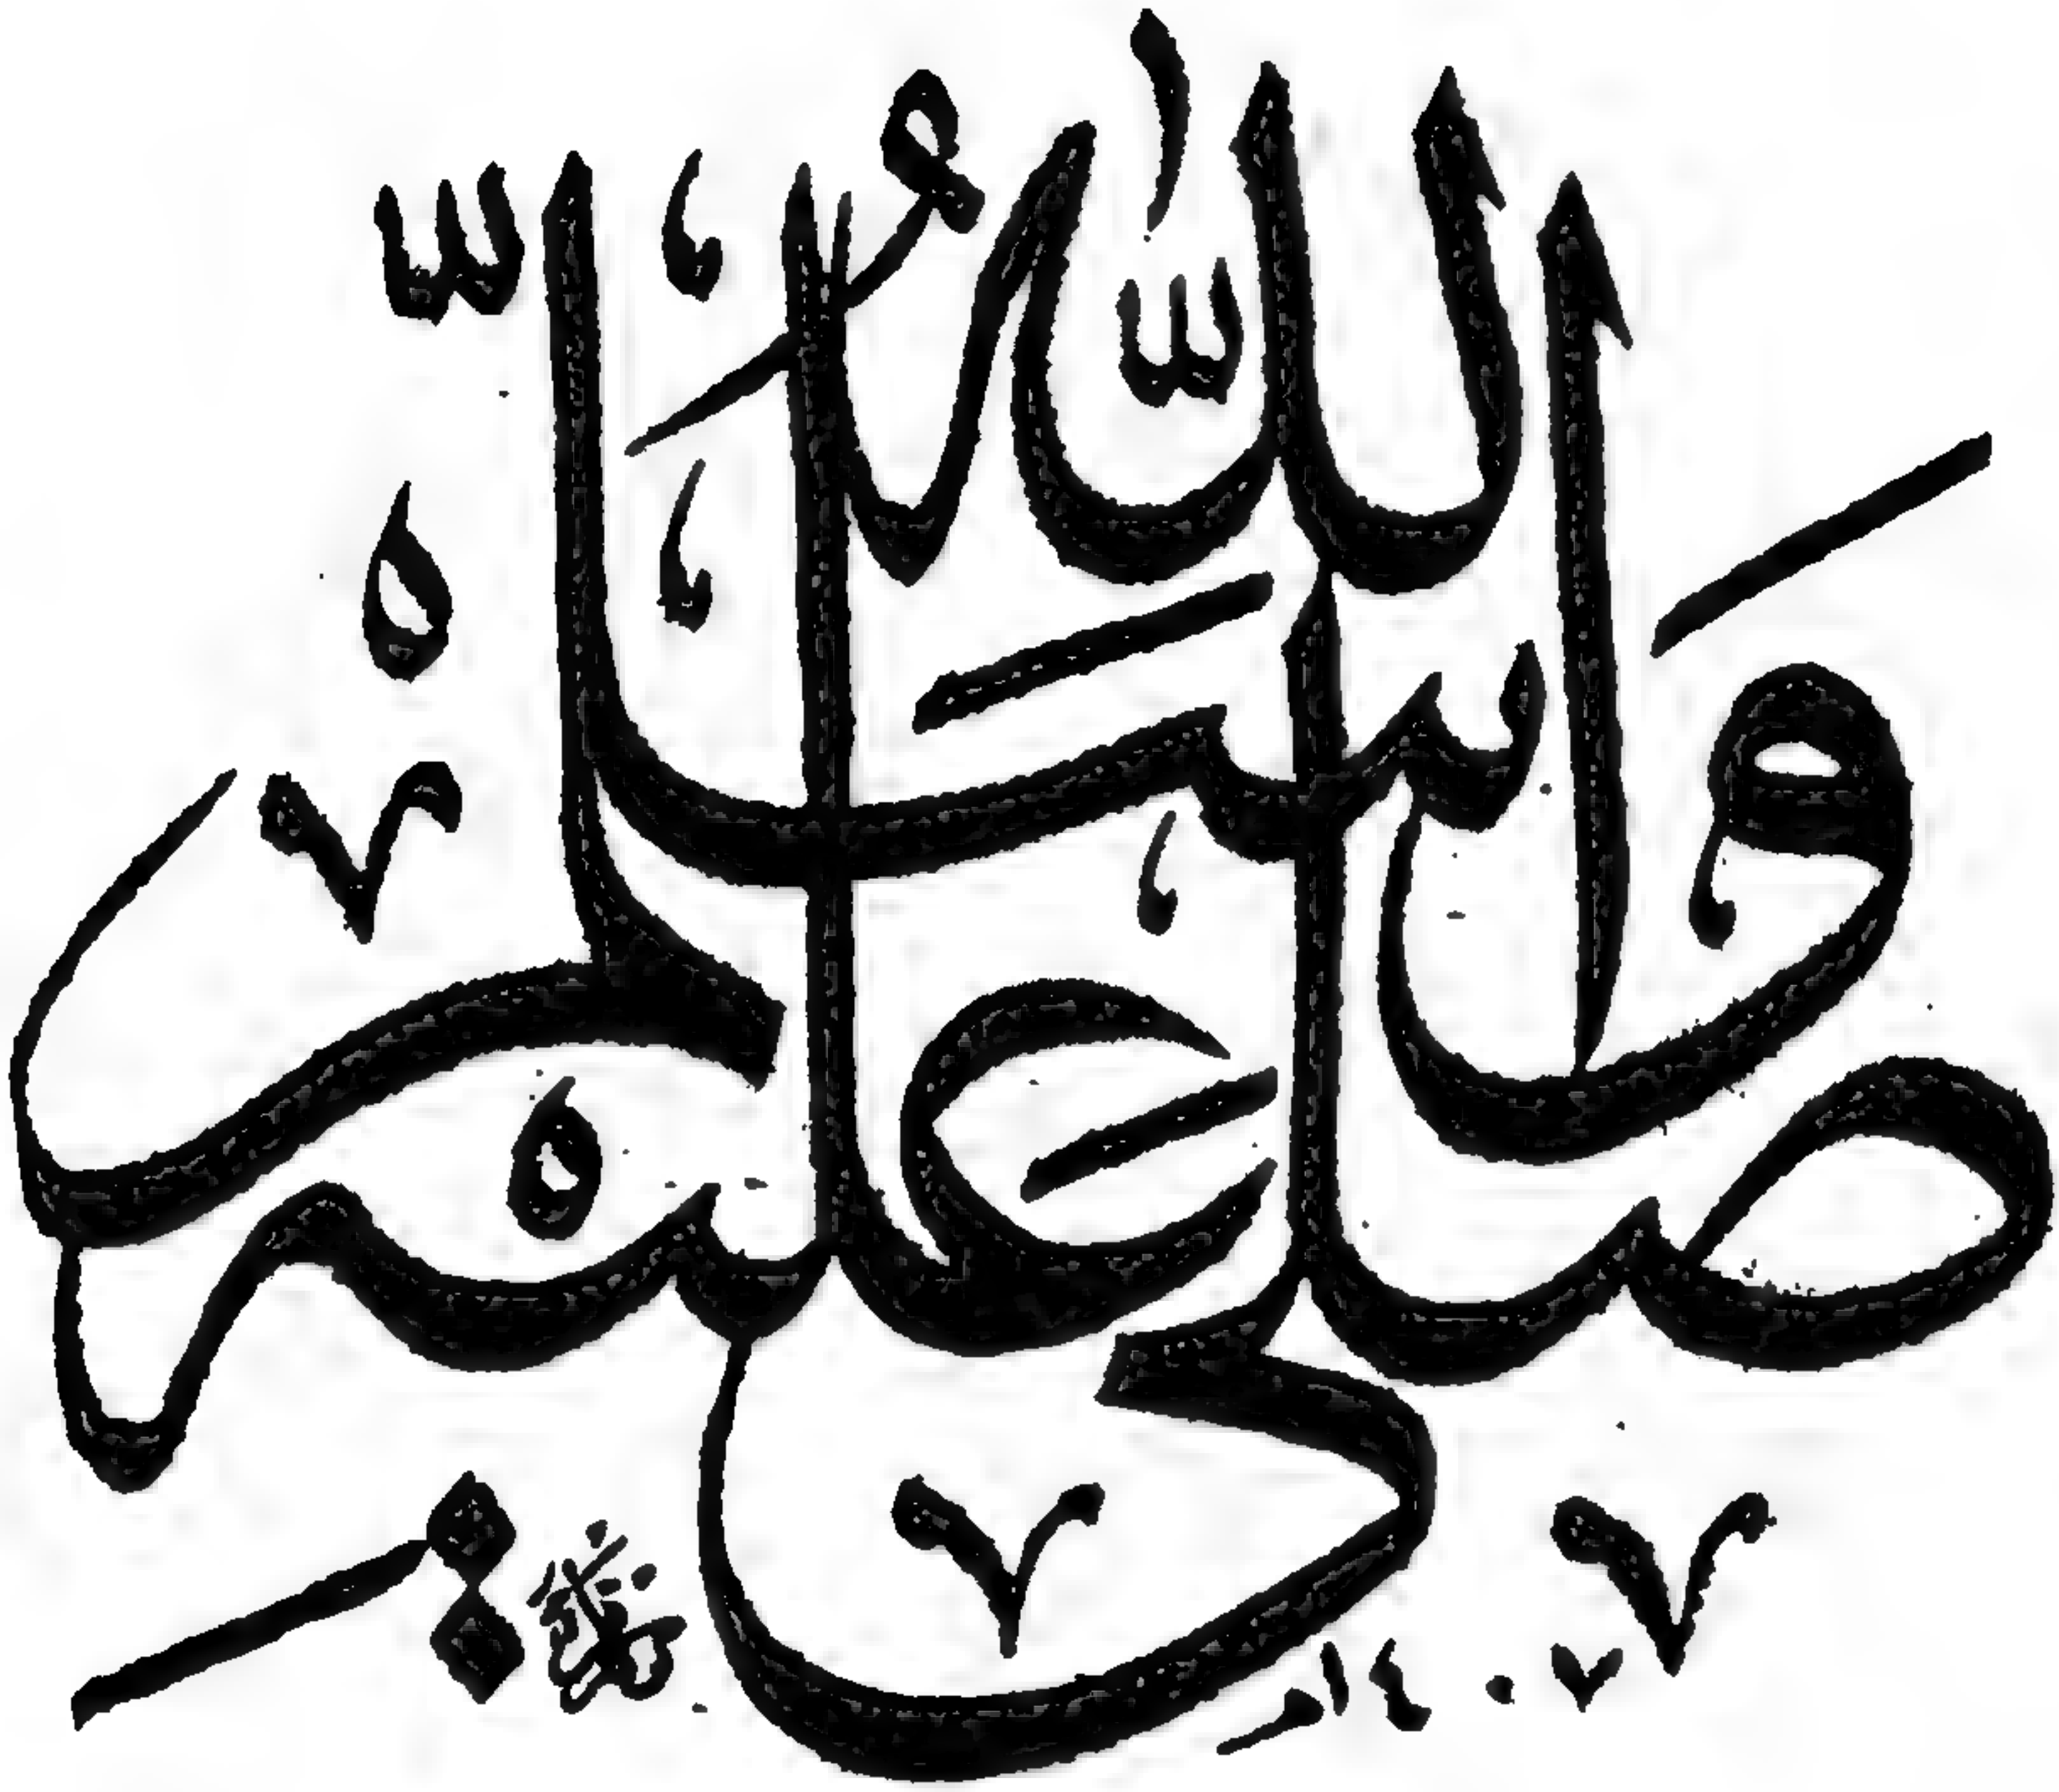 صلى الله عليه وسلم
١٤٠٧